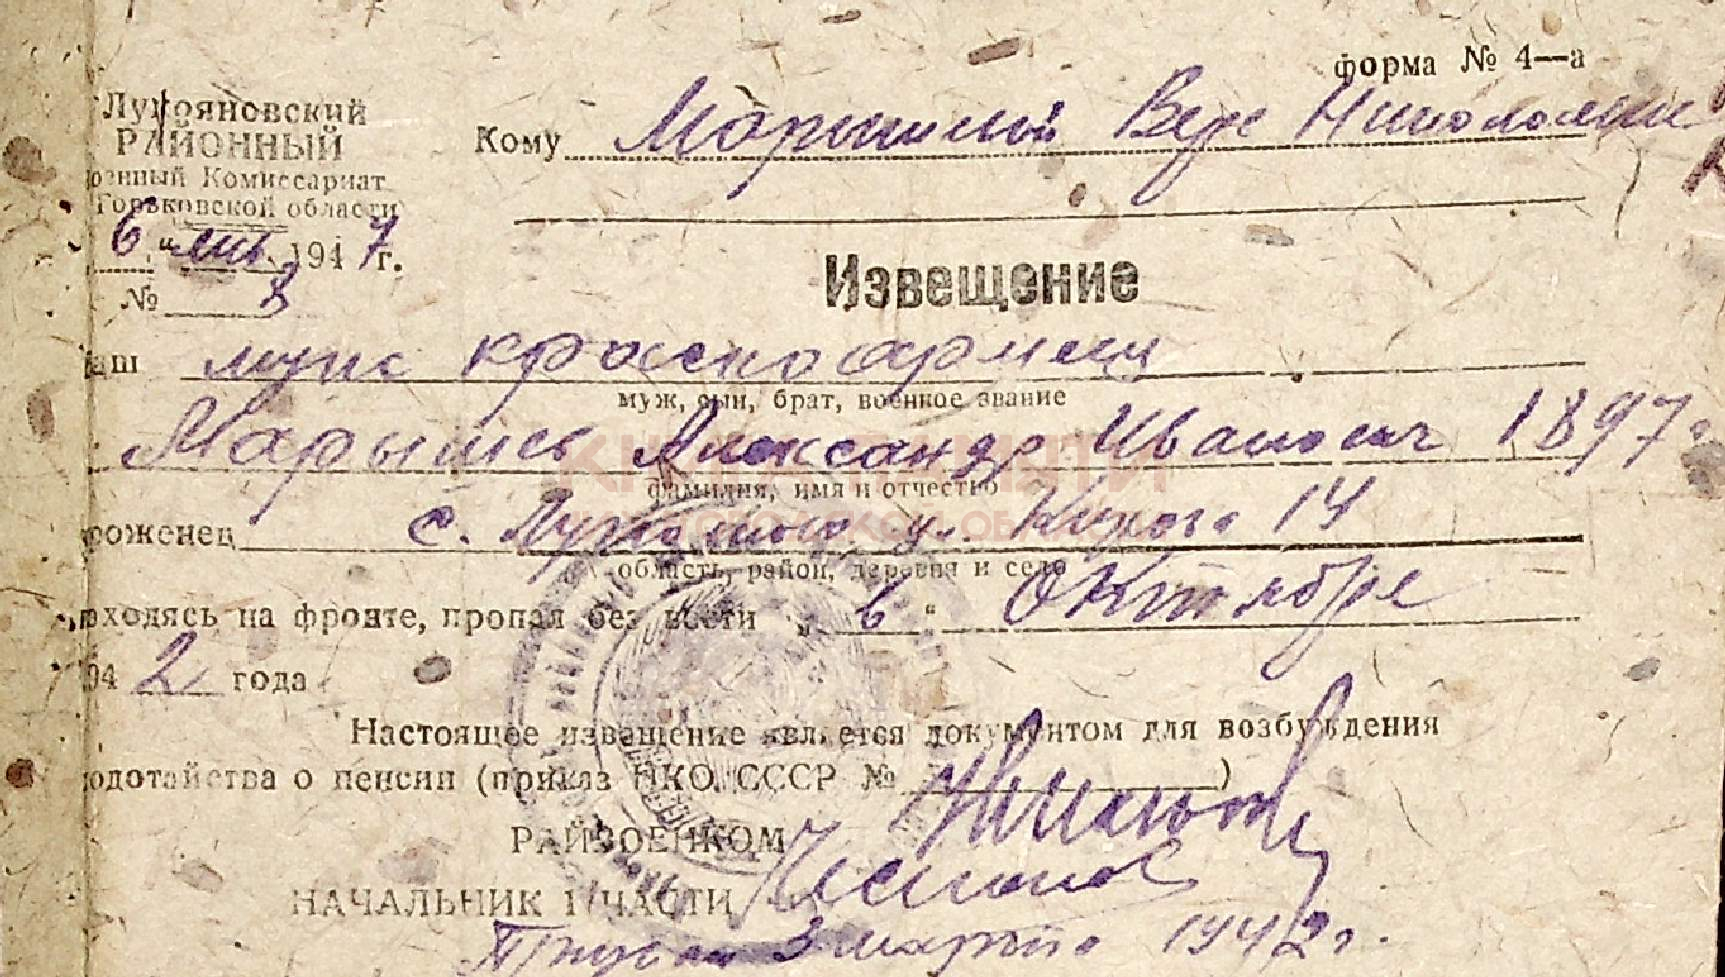 форма № 4—а
Лукояновский
РАЙОННЫЙ
оенный Комиссариат
Горьковской области
Кому Марышевой Вере Николаевне
6 " янв. 1947 г.
№ 8
Извещение
аш муж красноармеец
муж, сын, брат, военное звание
Марышев Александр Иванович 1897г.
КНИГА ПАМЯТИ
фамилия, имя и отчество
НИЖЕГОРОДСКОЙ ОБЛАСТИ
роженец с. Лукоянов ул. Кирова 14
область, район, деревня и село
аходясь на фронте, пропал без вести „ 6 “ Октября
942 года
Настоящее извещение является документом для возбуждения
одотайства о пенсии (приказ НКО СССР № )
РАЙВОЕНКОМ
НАЧАЛЬНИК 1 ЧАСТИ
Призван 3 марта 1942г.